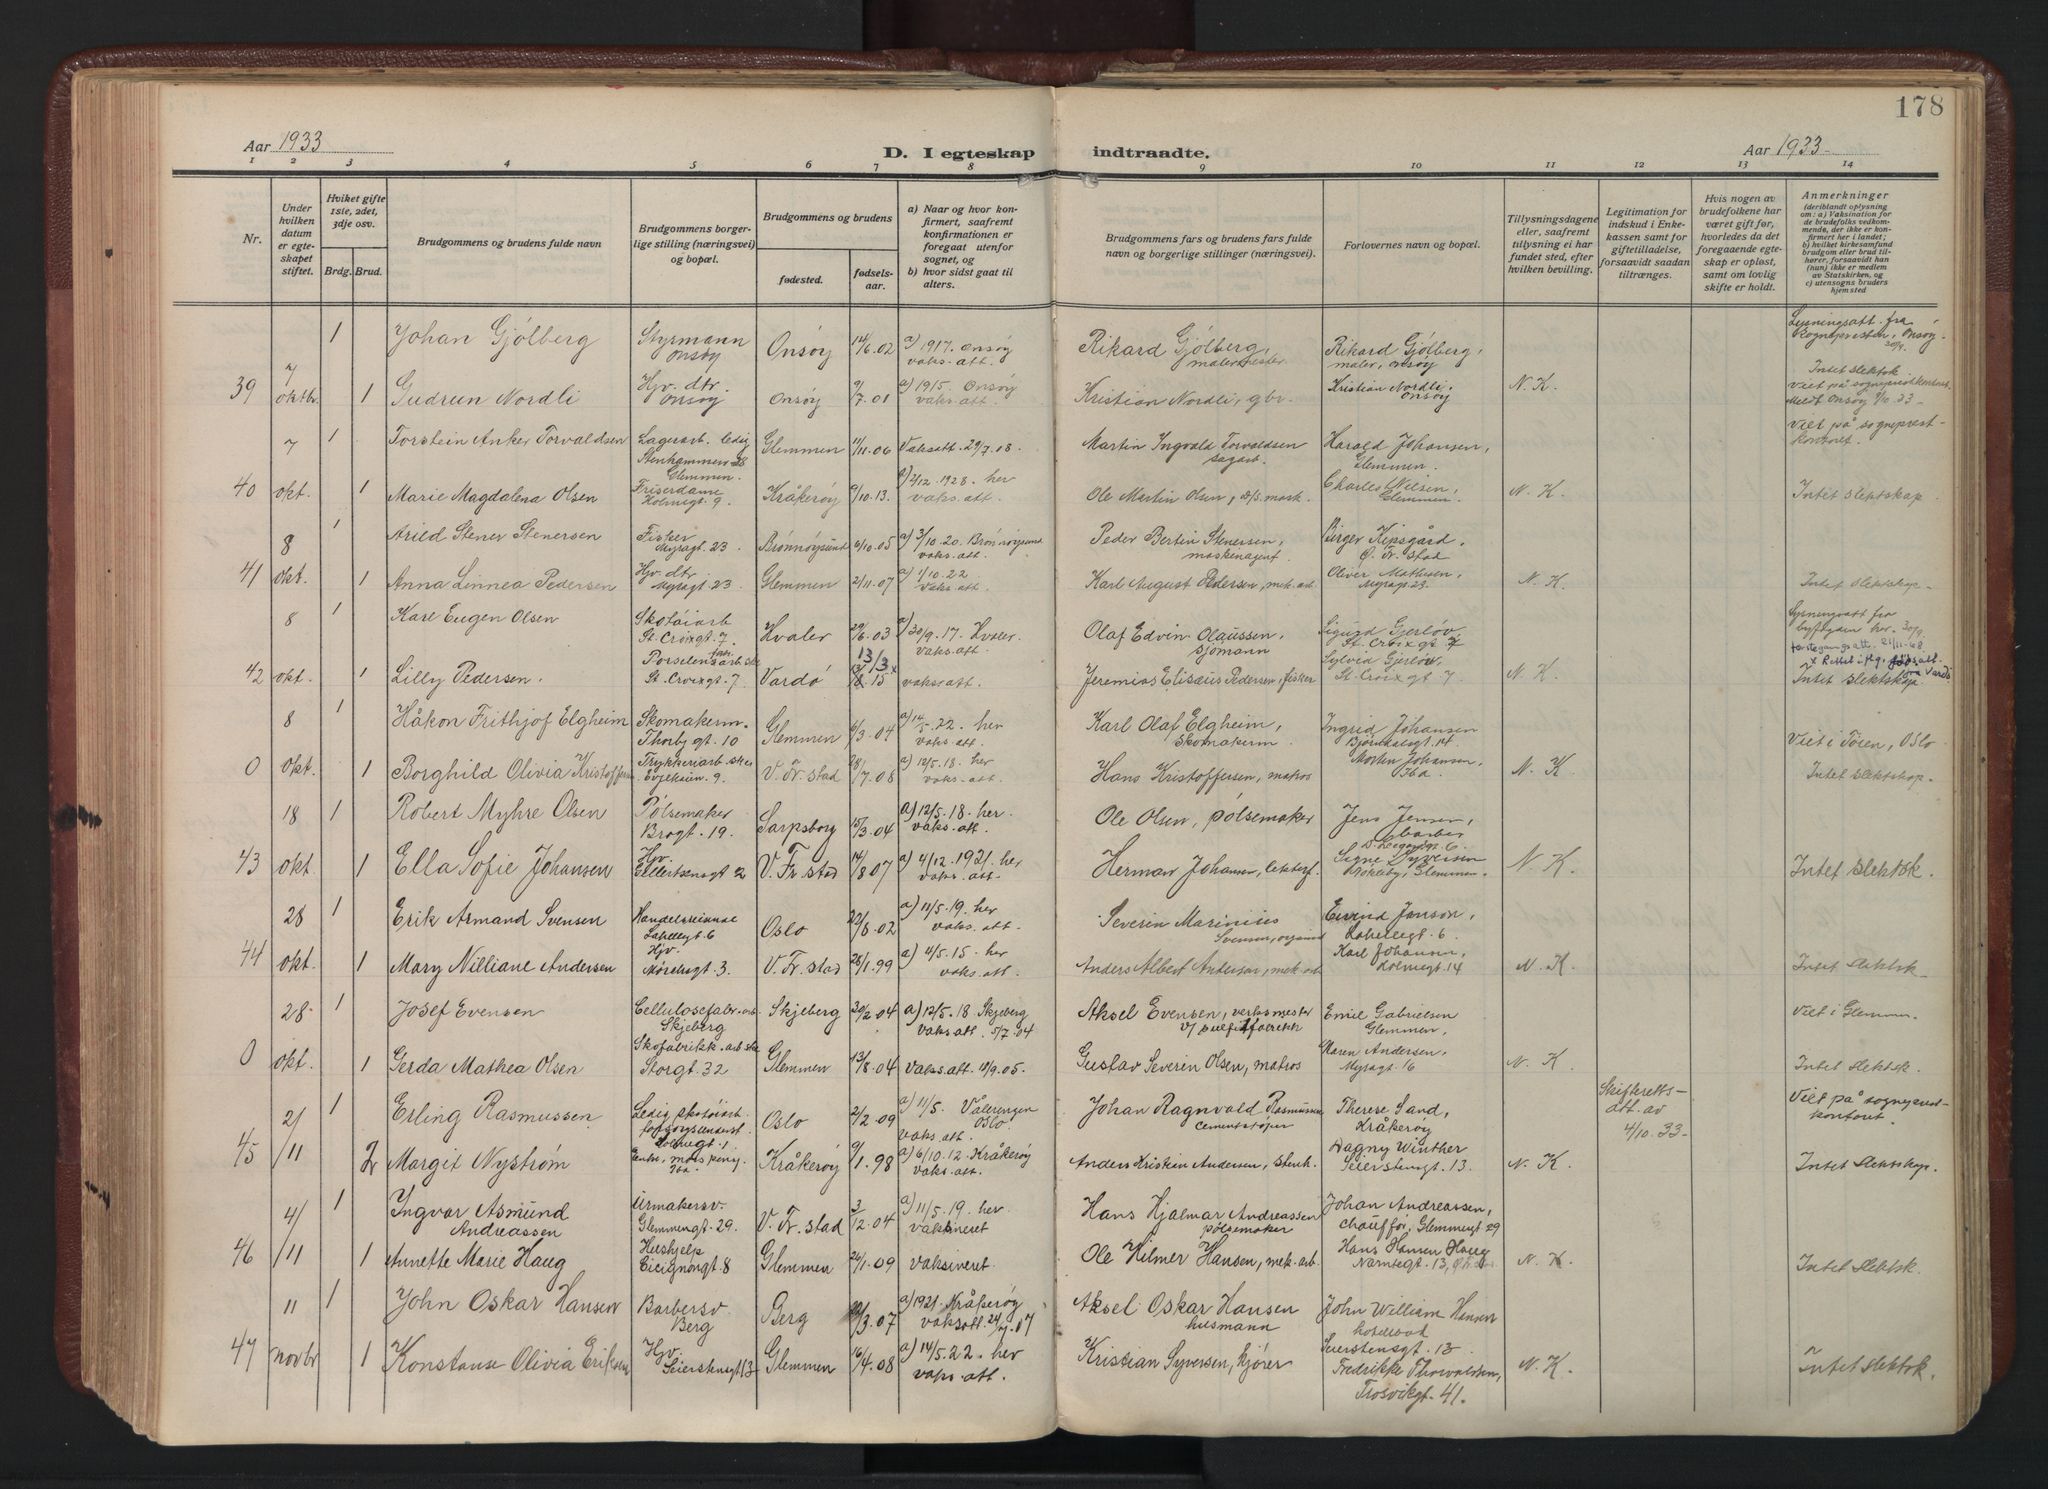 178
Aar 1933
D. I egteskap indtraadte.
Aar 1933
1 2 3 4 5 6 7 8 9 10 11 12 13 14
Nr.
Under hvilken datum er egte-skapet stiftet.
Hviket gifte 1ste, 2det, 3dje osv.
Brdg. Brud.
Brudgommens og brudens fulde navn
Brudgommens borger-lige stilling (næringsvei) og bopæl.
Brudgommens og brudens
fødested.
fødsels-aar.
a) Naar og hvor kon-firmert, saafremt konfirmationen er foregaat utenfor sognet, og
b) hvor sidst gaat til alters.
Brudgommens fars og brudens fars fulde navn og borgerlige stillinger (næringsvei).
Forlovernes navn og bopæl.
Tillysningsdagene eller, saafremt tillysning ei har fundet sted, efter hvilken bevilling.
Legitimation for indskud i Enke-kassen samt for giftetilladelse, forsaavidt saadan tiltrænges.
Hvis nogen av brudefolkene har været gift før, hvorledes da det foregaaende egte-skap er opløst, samt om lovlig skifte er holdt.
Anmerkninger
(deriblandt oplysning om: a) Vaksination for de brudefolks vedkom-mende, der ikke er kon-firmert her i landet; b) hvilket kirkesamfund brudgom eller brud til-hører, forsaavidt han (hun) ikke er medlem av Statskirken, og c) utensogns bruders hjemsted
1 Johan Gjölberg Styrmann Onsöy Onsöy 14/6.02 a) 1917. Onsöy vaks.att. Rikard Gjölberg, malermester Rikard Gjölberg, maler, Onsöy Lysningsatt. fra Sognepresten, Onsöy 30/9.
39 7 oktbr. 1 Gudrun Nordli Hjv. dtr. Onsöy Onsöy 9/7.01 a) 1915. Onsöy vaks.att. Kristian Nordli, gbr. Kristian Nordli, Onsöy N. K. Intet slektsk. Viet på sogneprestkontoret. Meldt Onsöy 9/10.33
7 1 Torstein Anker Torvaldsen Lagerarb. ledig Glemmen. Glemmen 11/11.06 Vaksatt. 29/7.08. Martin Ingvald Torvaldsen sagarb. Harald Johansen, Glemmen. Viet på sogneprest-kontoret.
40 okt. 1 Marie Magdalena Olsen Friserdame Holmegt. 9. Kråkeröy 9/10.13. 2/12.1928. her vaks.att. Ole Martin Olsen, d/s. mask. Charles Nilsen, Glemmen. N. K. Intet slektskap.
8 1 Arild Stener Stenersen Fisker Myragt. 23 Brönnöysund 6/10.05 a) 3/10.20. Brönnöysund vaks.att. Peder Bertin Stenersen, maskinagent Birger Kipsgård. Ö. Fr.stad
41 okt. 1 Anna Linnea Pedersen Hjv. dtr Myragt. 23 Glemmen 2/11.07 a) 1/10.22 vaks.att. Karl August Pedersen, mek.arb. Oliver Mathisen, Myragt. 23. N. K. Intet slektskap
8 1 Karl Eugen Olsen Skotöiarb St. Croixgt. 7. Hvaler 29/6.03 a) 30/9.17. Hvaler. vaks.att. Olaf Edvin Olaussen, sjömann Sigurd Gjerlöv, St. Croixgt. 7 Lysningsatt fra byfogden her. 30/9.
42 okt. 1 Lilly Pedersen. Porselensarb.ske St. Croixgt. 7 Vardö 13/3 15 x vaks.att. Jeremias Elisæus Pedersen, fisker Sylvia Gjerlöv, St. Croixgt 7 N. K. Intet slektskap.
8 1 Håkon Frithjof Elgheim Skomakerm. Thorbygt. 10 Glemmen 6/3.04 a) 14/5.22. her vaks.att. Karl Olaf Elgheim, skomakerm. Ingrid Johansen Björndalsgt. 14. Viet i Töien, Oslo
0 okt. 1 Borghild Olivia Kristoffersen Trykkeriarb.ske Evjeheim 9. V. Fr.stad 28/7.08 a) 12/5.18. her vaks.att. Hans Kristoffersen, matros Martin Johansen, 36a. N. K. Intet slektskap.
18 1 Robert Myhre Olsen Pölsemaker Brogt. 19. Sarpsborg 15/3.04 a) 12/5.18. her. vaks.att. Ole Olsen, pölsemaker Jens Jensen, barber
43 okt 1 Ella Sofie Johansen Hjv. Ellertsensgt 2 V. Fr.stad 14/8 07 a) 4/12.1921. her vaks.att. Herman Johansen, Signe Syversen Glemmen. N. K. Intet slektsk.
28 1 Erik Armand Svensen Handelsreisende Oslo 22/8.02 a) 11/5.19. her vaks.att. Severin Marinius Svensen, Eivind Jonson, 6.
44 okt. 1 Mary Nilliane Andersen Hjv. 3. V. Fr.stad 28/1.99 a) 4/5.15. her vaks.att. Anders Albert Andersen, mek.arb. Karl Johansen, Holmegt. 14 N. K. Intet slektsk
28. 1 Josef Evensen Cellulosefabr.arb Skjeberg Skjeberg 30/2 04 a) 12/5.18 Skjeberg vaks.att. 5/7.04 Aksel Evensen, verksmester v/ sulfitfabrikk Emil Gabrielsen Glemmen. Viet i Glemmen.
0 okt. 1 Gerda Mathea Olsen Skofabrikk.arb.ske Storgt. 32 Glemmen 13/8.04 Vaks.att. 11/9.05. Gustav Severin Olsen, matros Maren Andersen, Myragt. 16 N. K. Intet slektsk.
2/ 1 Erling Rasmussen Ledig skotöiarb. forsorgsunderst. Holmegt. 1 Oslo 2/2.09 a) 11/5. Vålerengen Oslo. vaks.att. Johan Ragnvald Rasmussen cementstöper Therese Sand, Kråkeröy Skifteretts-att. av 4/10.33- Viet på sogneprest-kontoret.
45 11 2 Margit Nyström Enke, 36a. Kråkeröy 9/1.98 a) 6/10.12. Kråkeröy vaks.att. Anders Kristian Andersen, stenh. Dagny Winther Seierstensgt. 13. N. K. Intet slektskap.
4/ 1 Ingvar Asmund Andreassen Urmakersv. Glemmengt. 29. V. Fr.stad 3/12.04 a) 11/5.19. her vaksineret Hans Hjalmar Andreassen pölsemaker Johan Andreassen, chaufför, Glemmengt 29
46 11 1 Annette Marie Haug Hushjelp Cicignongt. 8 Glemmen 26/1.09 vaksineret. Ole Hilmer Hansen, mek.arb. Hans Hansen Haug 13, N. K. Intet slektsk.
11 1 John Oskar Hansen Barbersv. Berg Berg /3.07 a) 1921. Kråkeröy vaksatt. 24/7.07 Aksel Oskar Hansen husmann John William Hansen Seierstensgt. 13
47 novbr 1 Konstanse Olivia Eriksen Hjv. Seierstensgt 13 Glemmen 16/4.08 a) 14/5.22. her vaks.att. Kristian Syversen, kjörer Fredrikke Thorvaldsen, Trosvikgt. 41. N. K. Intet slektsk.